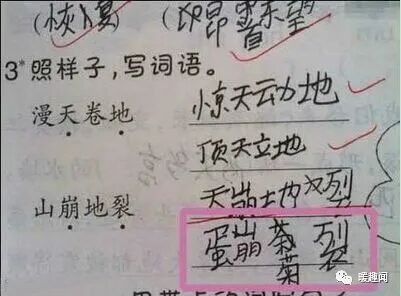 (恢复) (昂首东望)
3*照样子,写词语。
漫天卷地 惊天动地
顶天立地
山崩地裂 天崩地裂
蛋崩菊裂
暖趣闻